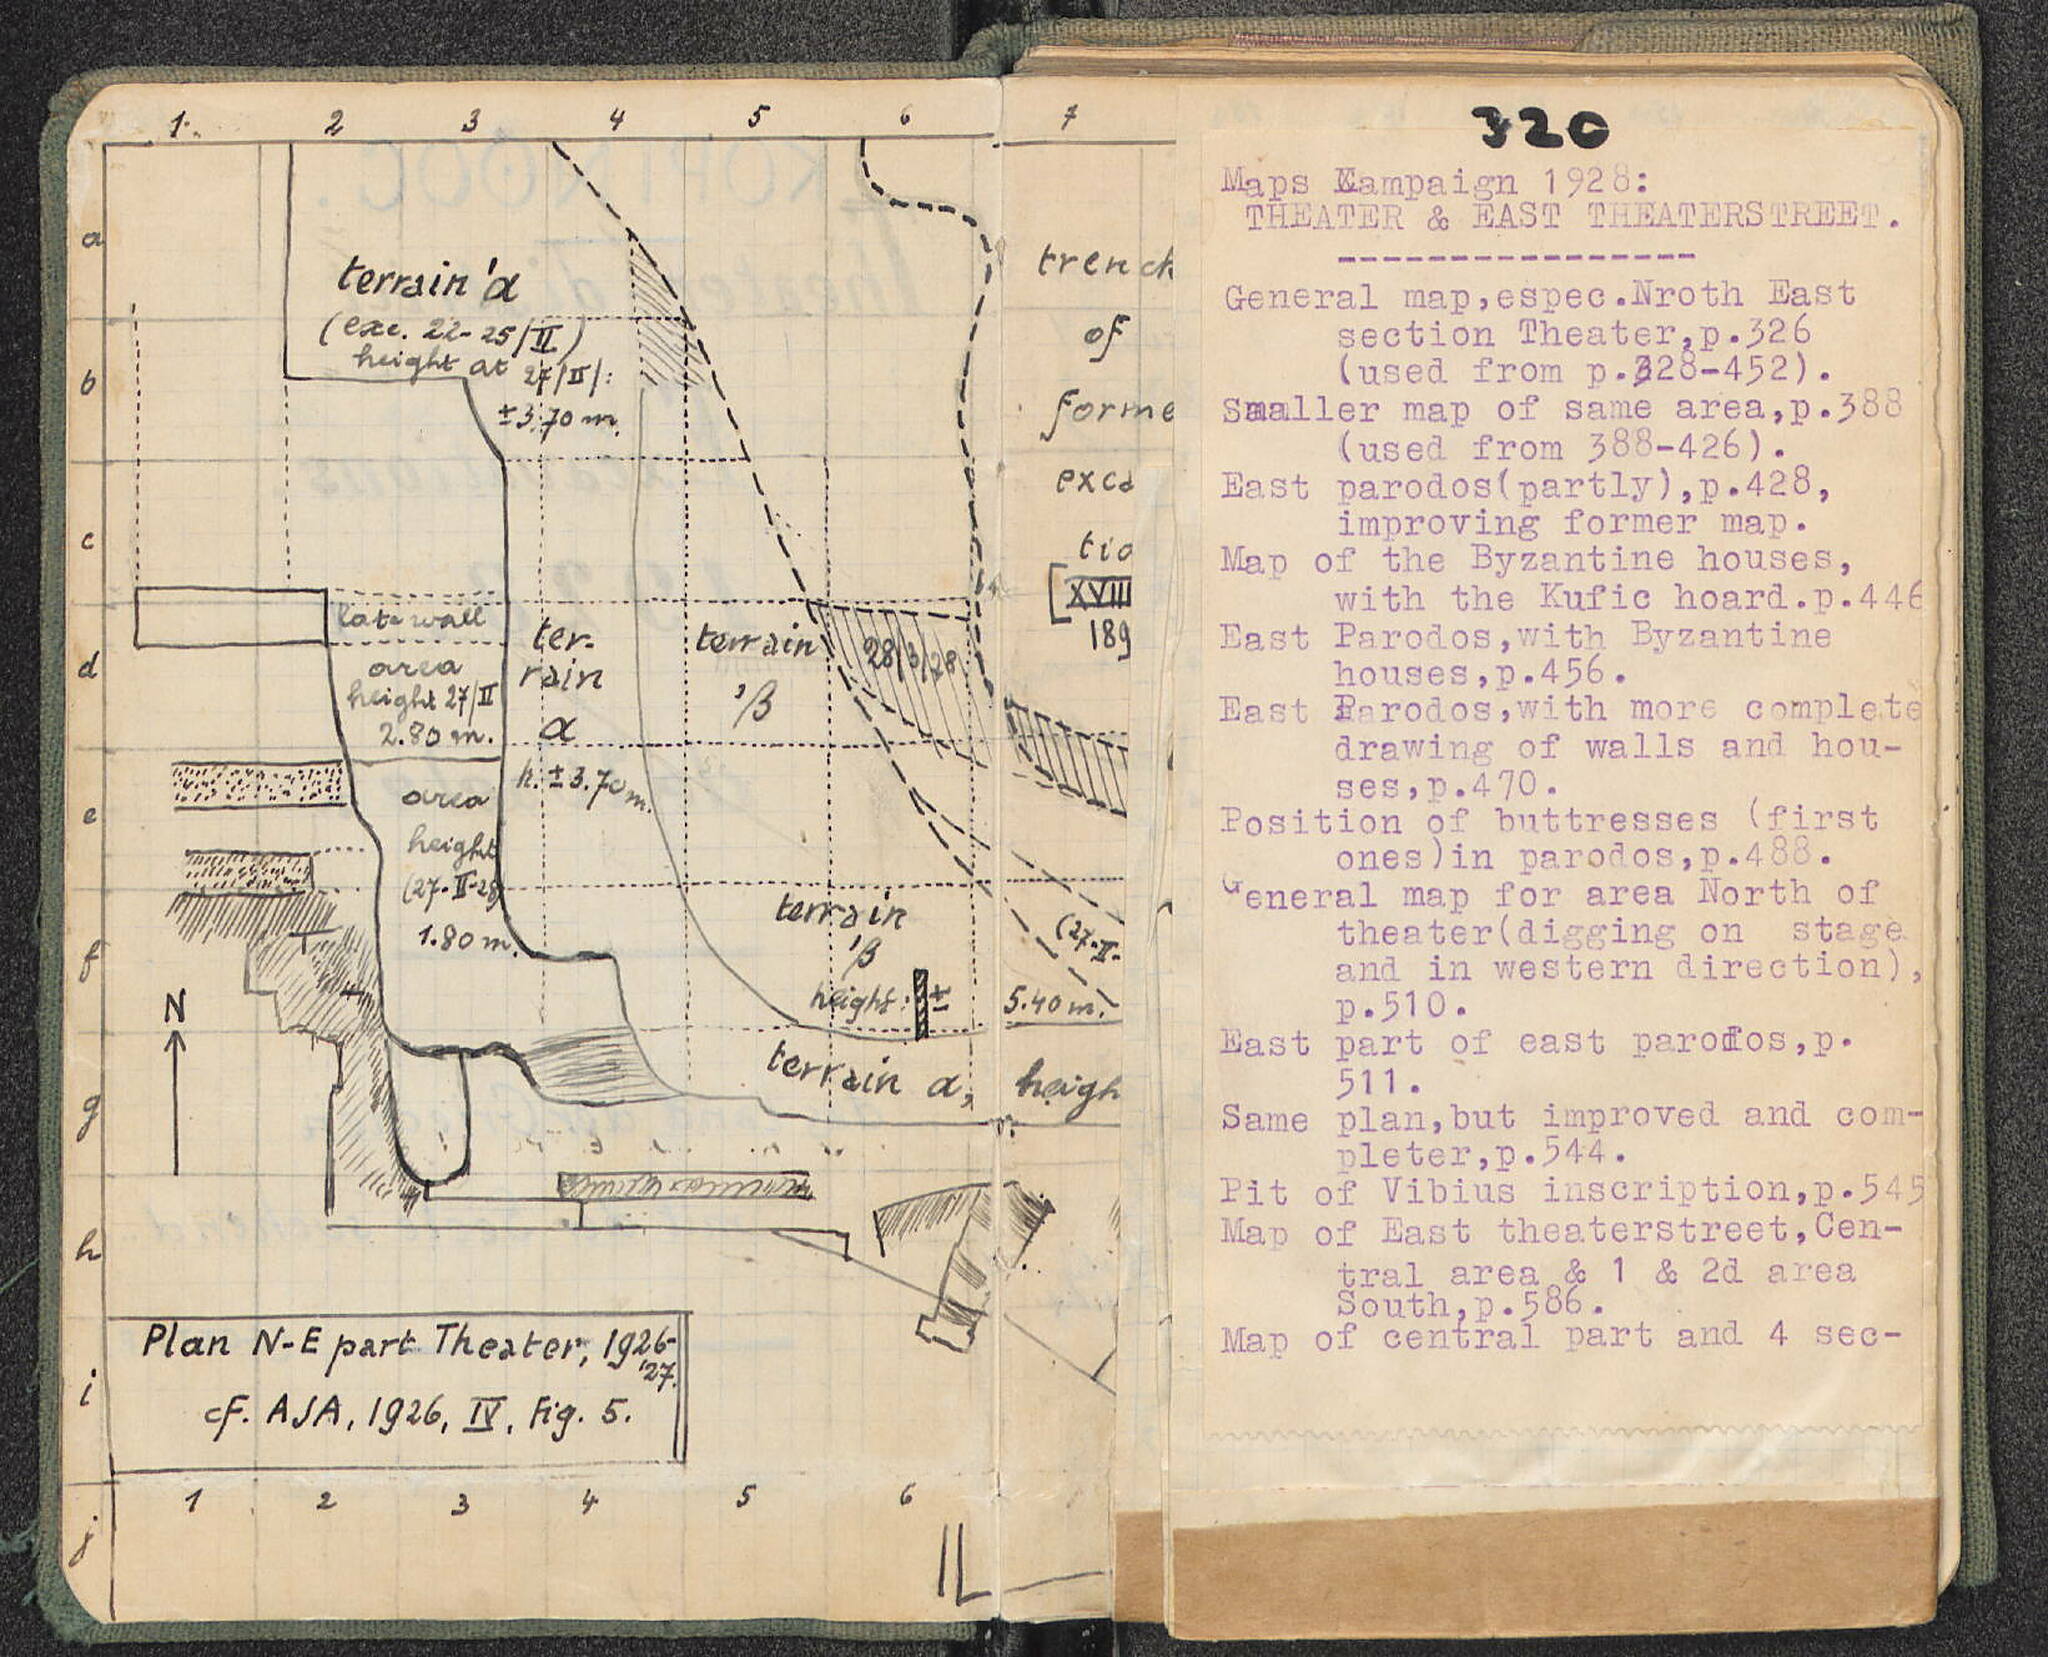 1 2 3 4 5 6 7
a
b
c
d
e
f
g
h
i
j
terrain 'α
(exc. 22-25/II)
height at 27/II/:
±3.70 m.
late wall
area
height 27/II
2.80 m.
ter-
rain
α
h. ±3.70 m.
terrain
'β
28/3/28
area
height
(27-II-28)
1.80 m.
terrain
'β
height: ± 5.40 m.
(27-II-
terrain α, heigh
trench
of
forme
exca
tio
[XVIII
189
N
Plan N-E part Theater, 1926-
'27.
cf. AJA, 1926, IV, Fig. 5.
1 2 3 4 5 6
320
Maps Campaign 1928:
THEATER & EAST THEATERSTREET.
----------------
General map,espec.Nroth East
section Theater,p.326
(used from p.328-452).
Smaller map of same area,p.388
(used from 388-426).
East parodos(partly),p.428,
improving former map.
Map of the Byzantine houses,
with the Kufic hoard.p.446
East Parodos,with Byzantine
houses,p.456.
East Parodos,with more complete
drawing of walls and hou-
ses,p.470.
Position of buttresses (first
ones)in parodos,p.488.
General map for area North of
theater(digging on stage
and in western direction),
p.510.
East part of east parodos,p.
511.
Same plan,but improved and com-
pleter,p.544.
Pit of Vibius inscription,p.545
Map of East theaterstreet,Cen-
tral area & 1 & 2d area
South,p.586.
Map of central part and 4 sec-